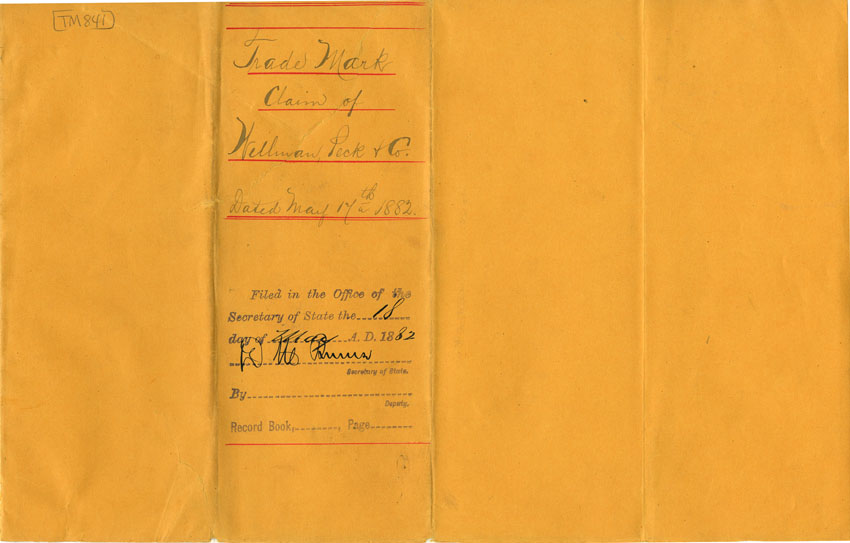 [TM841]
Trade Mark
Claim of
Wellman, Peck & Co.
Dated May 17th 1882.
Filed in the Office of the
Secretary of State the 18
day of May A. D. 1882
Secretary of State.
By
Deputy.
Record Book, , Page